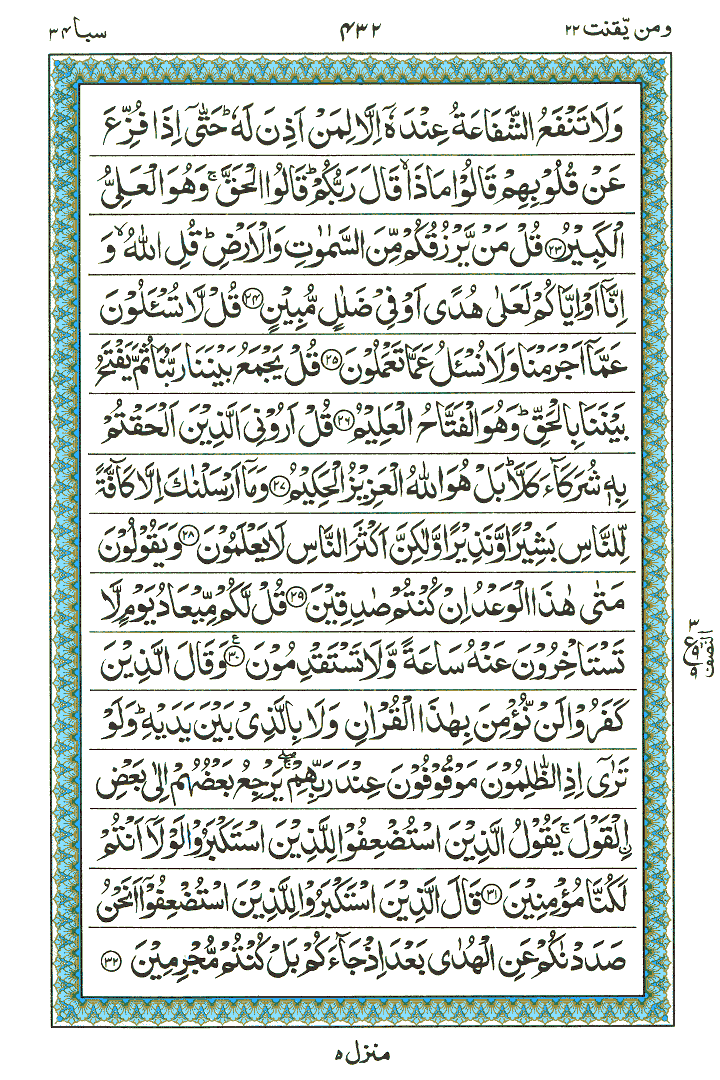 سبا ۳۴
۴۳۲
ومن یّقنت ۲۲
وَلَا تَنْفَعُ الشَّفَاعَةُ عِنْدَهٗۤ اِلَّا لِمَنْ اَذِنَ لَهٗ ؕ حَتّٰۤی اِذَا فُزِّعَ
عَنْ قُلُوْبِهِمْ قَالُوْا مَاذَا ۙ قَالَ رَبُّكُمْ ؕ قَالُوا الْحَقَّ ۚ وَهُوَ الْعَلِیُّ
الْكَبِیْرُ ﴿۲۳﴾ قُلْ مَنْ یَّرْزُقُكُمْ مِّنَ السَّمٰوٰتِ وَالْاَرْضِ ؕ قُلِ اللّٰهُ ۙ وَ
اِنَّاۤ اَوْ اِیَّاكُمْ لَعَلٰی هُدًی اَوْ فِیْ ضَلٰلٍ مُّبِیْنٍ ﴿۲۴﴾ قُلْ لَّا تُسْـَٔلُوْنَ
عَمَّاۤ اَجْرَمْنَا وَلَا نُسْـَٔلُ عَمَّا تَعْمَلُوْنَ ﴿۲۵﴾ قُلْ یَجْمَعُ بَیْنَنَا رَبُّنَا ثُمَّ یَفْتَحُ
بَیْنَنَا بِالْحَقِّ ؕ وَهُوَ الْفَتَّاحُ الْعَلِیْمُ ﴿۲۶﴾ قُلْ اَرُوْنِیَ الَّذِیْنَ اَلْحَقْتُمْ
بِهٖ شُرَكَآءَ كَلَّا ؕ بَلْ هُوَ اللّٰهُ الْعَزِیْزُ الْحَكِیْمُ ﴿۲۷﴾ وَمَاۤ اَرْسَلْنٰكَ اِلَّا كَآفَّةً
لِّلنَّاسِ بَشِیْرًا وَّنَذِیْرًا وَّلٰكِنَّ اَكْثَرَ النَّاسِ لَا یَعْلَمُوْنَ ﴿۲۸﴾ وَیَقُوْلُوْنَ
مَتٰی هٰذَا الْوَعْدُ اِنْ كُنْتُمْ صٰدِقِیْنَ ﴿۲۹﴾ قُلْ لَّكُمْ مِّیْعَادُ یَوْمٍ لَّا
تَسْتَاْخِرُوْنَ عَنْهُ سَاعَةً وَّلَا تَسْتَقْدِمُوْنَ ﴿۳۰﴾ وَقَالَ الَّذِیْنَ
كَفَرُوْا لَنْ نُّؤْمِنَ بِهٰذَا الْقُرْاٰنِ وَلَا بِالَّذِیْ بَیْنَ یَدَیْهِ ؕ وَلَوْ
تَرٰۤی اِذِ الظّٰلِمُوْنَ مَوْقُوْفُوْنَ عِنْدَ رَبِّهِمْ ۖۚ یَرْجِعُ بَعْضُهُمْ اِلٰی بَعْضِ
اِۨلْقَوْلَ ۚ یَقُوْلُ الَّذِیْنَ اسْتُضْعِفُوْا لِلَّذِیْنَ اسْتَكْبَرُوْا لَوْلَاۤ اَنْتُمْ
لَكُنَّا مُؤْمِنِیْنَ ﴿۳۱﴾ قَالَ الَّذِیْنَ اسْتَكْبَرُوْا لِلَّذِیْنَ اسْتُضْعِفُوْۤا اَنَحْنُ
صَدَدْنٰكُمْ عَنِ الْهُدٰی بَعْدَ اِذْ جَآءَكُمْ بَلْ كُنْتُمْ مُّجْرِمِیْنَ ﴿۳۲﴾
۳
ع
۹
النصف
منزل ۵